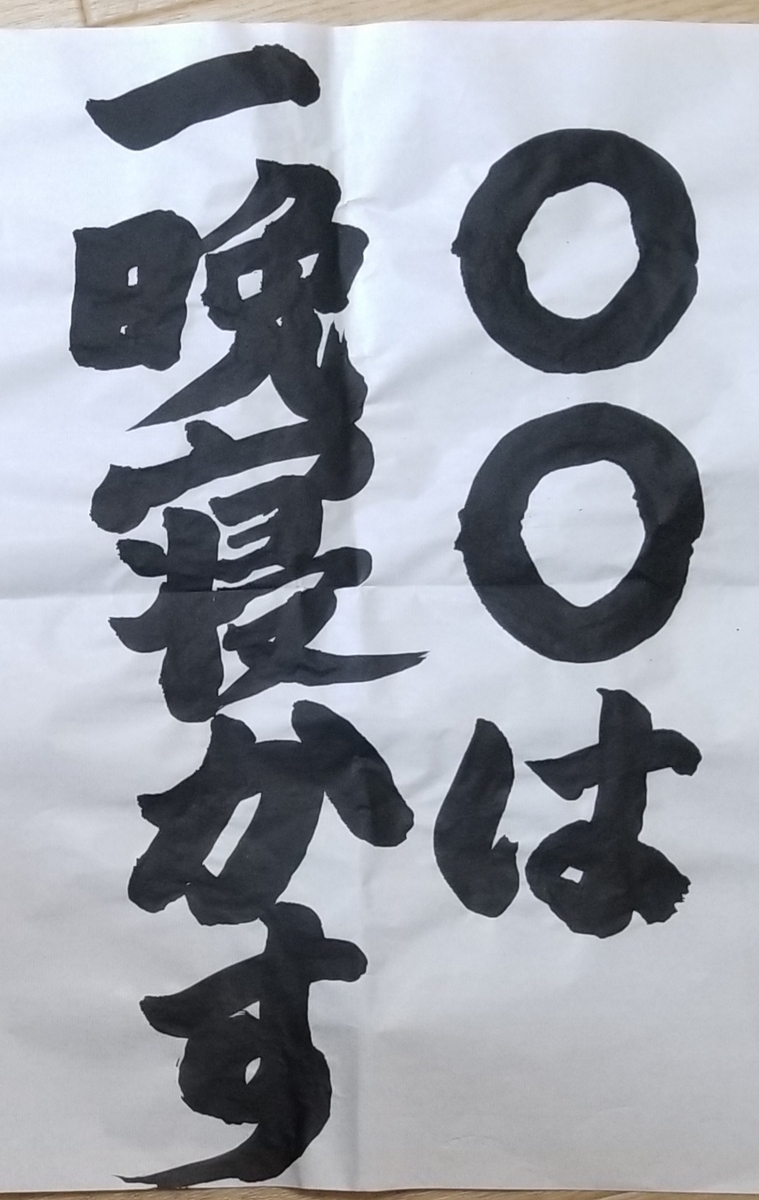 〇〇は
一晩寝かす